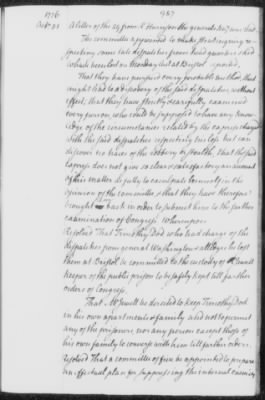 1776 987
Octr 31 A letter of the 29 from R Harrison the generals secy was read.
The committee appointed to make strict enquiry re-
specting some late dispatches from head quarters said
which were lost on thursday last at Bristol reported
That they have pursued every probable method that
ought lead to a discovery of the said dispatches without
effect; that they have strictly & carefully examined
every person who could be supposed to have any know-
ledge of the circumstances related by the express charged
with the said dispatches respecting his loss but can
discover no traces of the robbery so forth; That the said
express does not give so clear & satisfactory an account
of this matter as fully to exculpate himself in the
opinion of the committee & that they have therefore
brought him back in order to submit him to the further
examination of Congress Whereupon
Resolved That Timothy Dod who had charge of the
dispatches from general Washington & alledges he lost
them at Bristol be committed to the custody of Mr Jewell
keeper of the public prison to be safely kept till farther
orders of Congress
That Mr Jewell be directed to keep Timothy Dod
in his own apartments & family and not to permit
any of the prisoners, nor any person except those of
his own family to converse with him till further orders.
Resolved That a committee of five be appointed to prepare
an effectual plan for suppressing the internal enemies